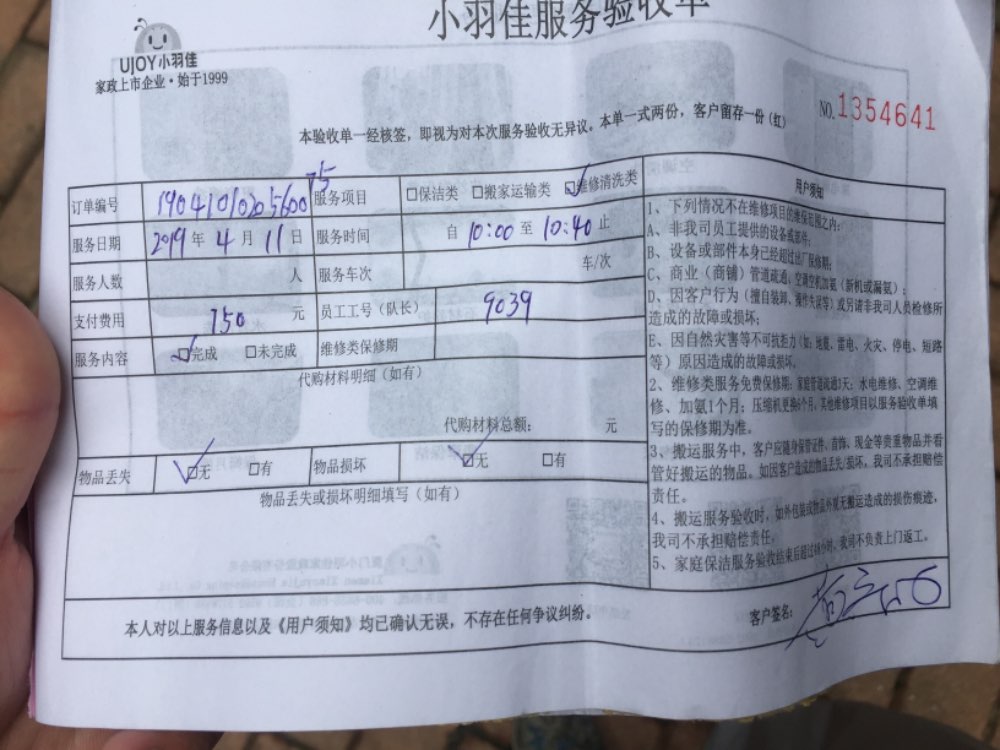 小羽佳服务验收单
UJOY小羽佳
家政上市企业·始于1999
NO.1354641
本验收单一经核签，即视为对本次服务验收无异议。本单一式两份，客户留存一份（红）
订单编号 服务项目 □保洁类 □搬家运输类 ☑维修清洗类
服务日期 2019年4月11日 服务时间 自 10:00 至 10:40 止
服务人数 人 服务车次 车/次
支付费用 150 元 员工工号（队长） 9039
服务内容 ☑完成 □未完成 维修类保修期
代购材料明细（如有）
代购材料总额： 元
物品丢失 ☑无 □有 物品损坏 ☑无 □有
物品丢失或损坏明细填写（如有）
用户须知
1、下列情况不在维修项目的维保范围之内：
A、非我司员工提供的设备或部件；
B、设备或部件本身已经超过出厂保修期；
C、商业（商铺）管道疏通，空调空机加氨（新机或漏氨）；
D、因客户行为（擅自装卸、操作失误等）或另请非我司人员检修所
造成的故障或损坏；
E、因自然灾害等不可抗拒力（如：地震、雷电、火灾、停电、短路
等）原因造成的故障或损坏。
2、维修类服务免费保修期：家庭管道疏通3天；水电维修、空调维
修、加氨1个月；压缩机更换6个月，其他维修项目以服务验收单填
写的保修期为准。
3、搬运服务中，客户应随身保管证件、首饰、现金等贵重物品并看
管好搬运的物品。如因客户造成的物品丢失/损坏，我司不承担赔偿
责任。
4、搬运服务验收时，如外包装或物品外观无搬运造成的损伤痕迹，
我司不承担赔偿责任。
5、家庭保洁服务验收结束后超过48小时，我司不负责上门返工。
本人对以上服务信息以及《用户须知》均已确认无误，不存在任何争议纠纷。
客户签名：